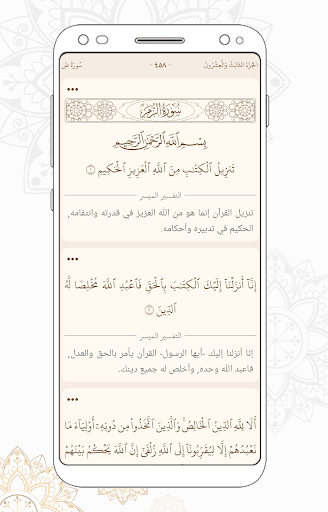 الجزء الثالث والعشرون - ٤٥٨ - سورة ص
سُورَةُ الزُّمَرِ
بِسْمِ اللَّهِ الرَّحْمَٰنِ الرَّحِيمِ
تَنزِيلُ الْكِتَٰبِ مِنَ اللَّهِ الْعَزِيزِ الْحَكِيمِ ١
التفسير الميسر
تنزيل القرآن إنما هو من الله العزيز في قدرته وانتقامه,
الحكيم في تدبيره وأحكامه.
إِنَّآ أَنزَلْنَآ إِلَيْكَ الْكِتَٰبَ بِالْحَقِّ فَاعْبُدِ اللَّهَ مُخْلِصًا لَّهُ
الدِّينَ ٢
التفسير الميسر
إنا أنزلنا إليك -أيها الرسول- القرآن يأمر بالحق والعدل,
فاعبد الله وحده, وأخلص له جميع دينك.
أَلَا لِلَّهِ الدِّينُ الْخَالِصُ وَالَّذِينَ اتَّخَذُوا مِن دُونِهِۦٓ أَوْلِيَآءَ مَا
نَعْبُدُهُمْ إِلَّا لِيُقَرِّبُونَآ إِلَى اللَّهِ زُلْفَىٰٓ إِنَّ اللَّهَ يَحْكُمُ بَيْنَهُمْ